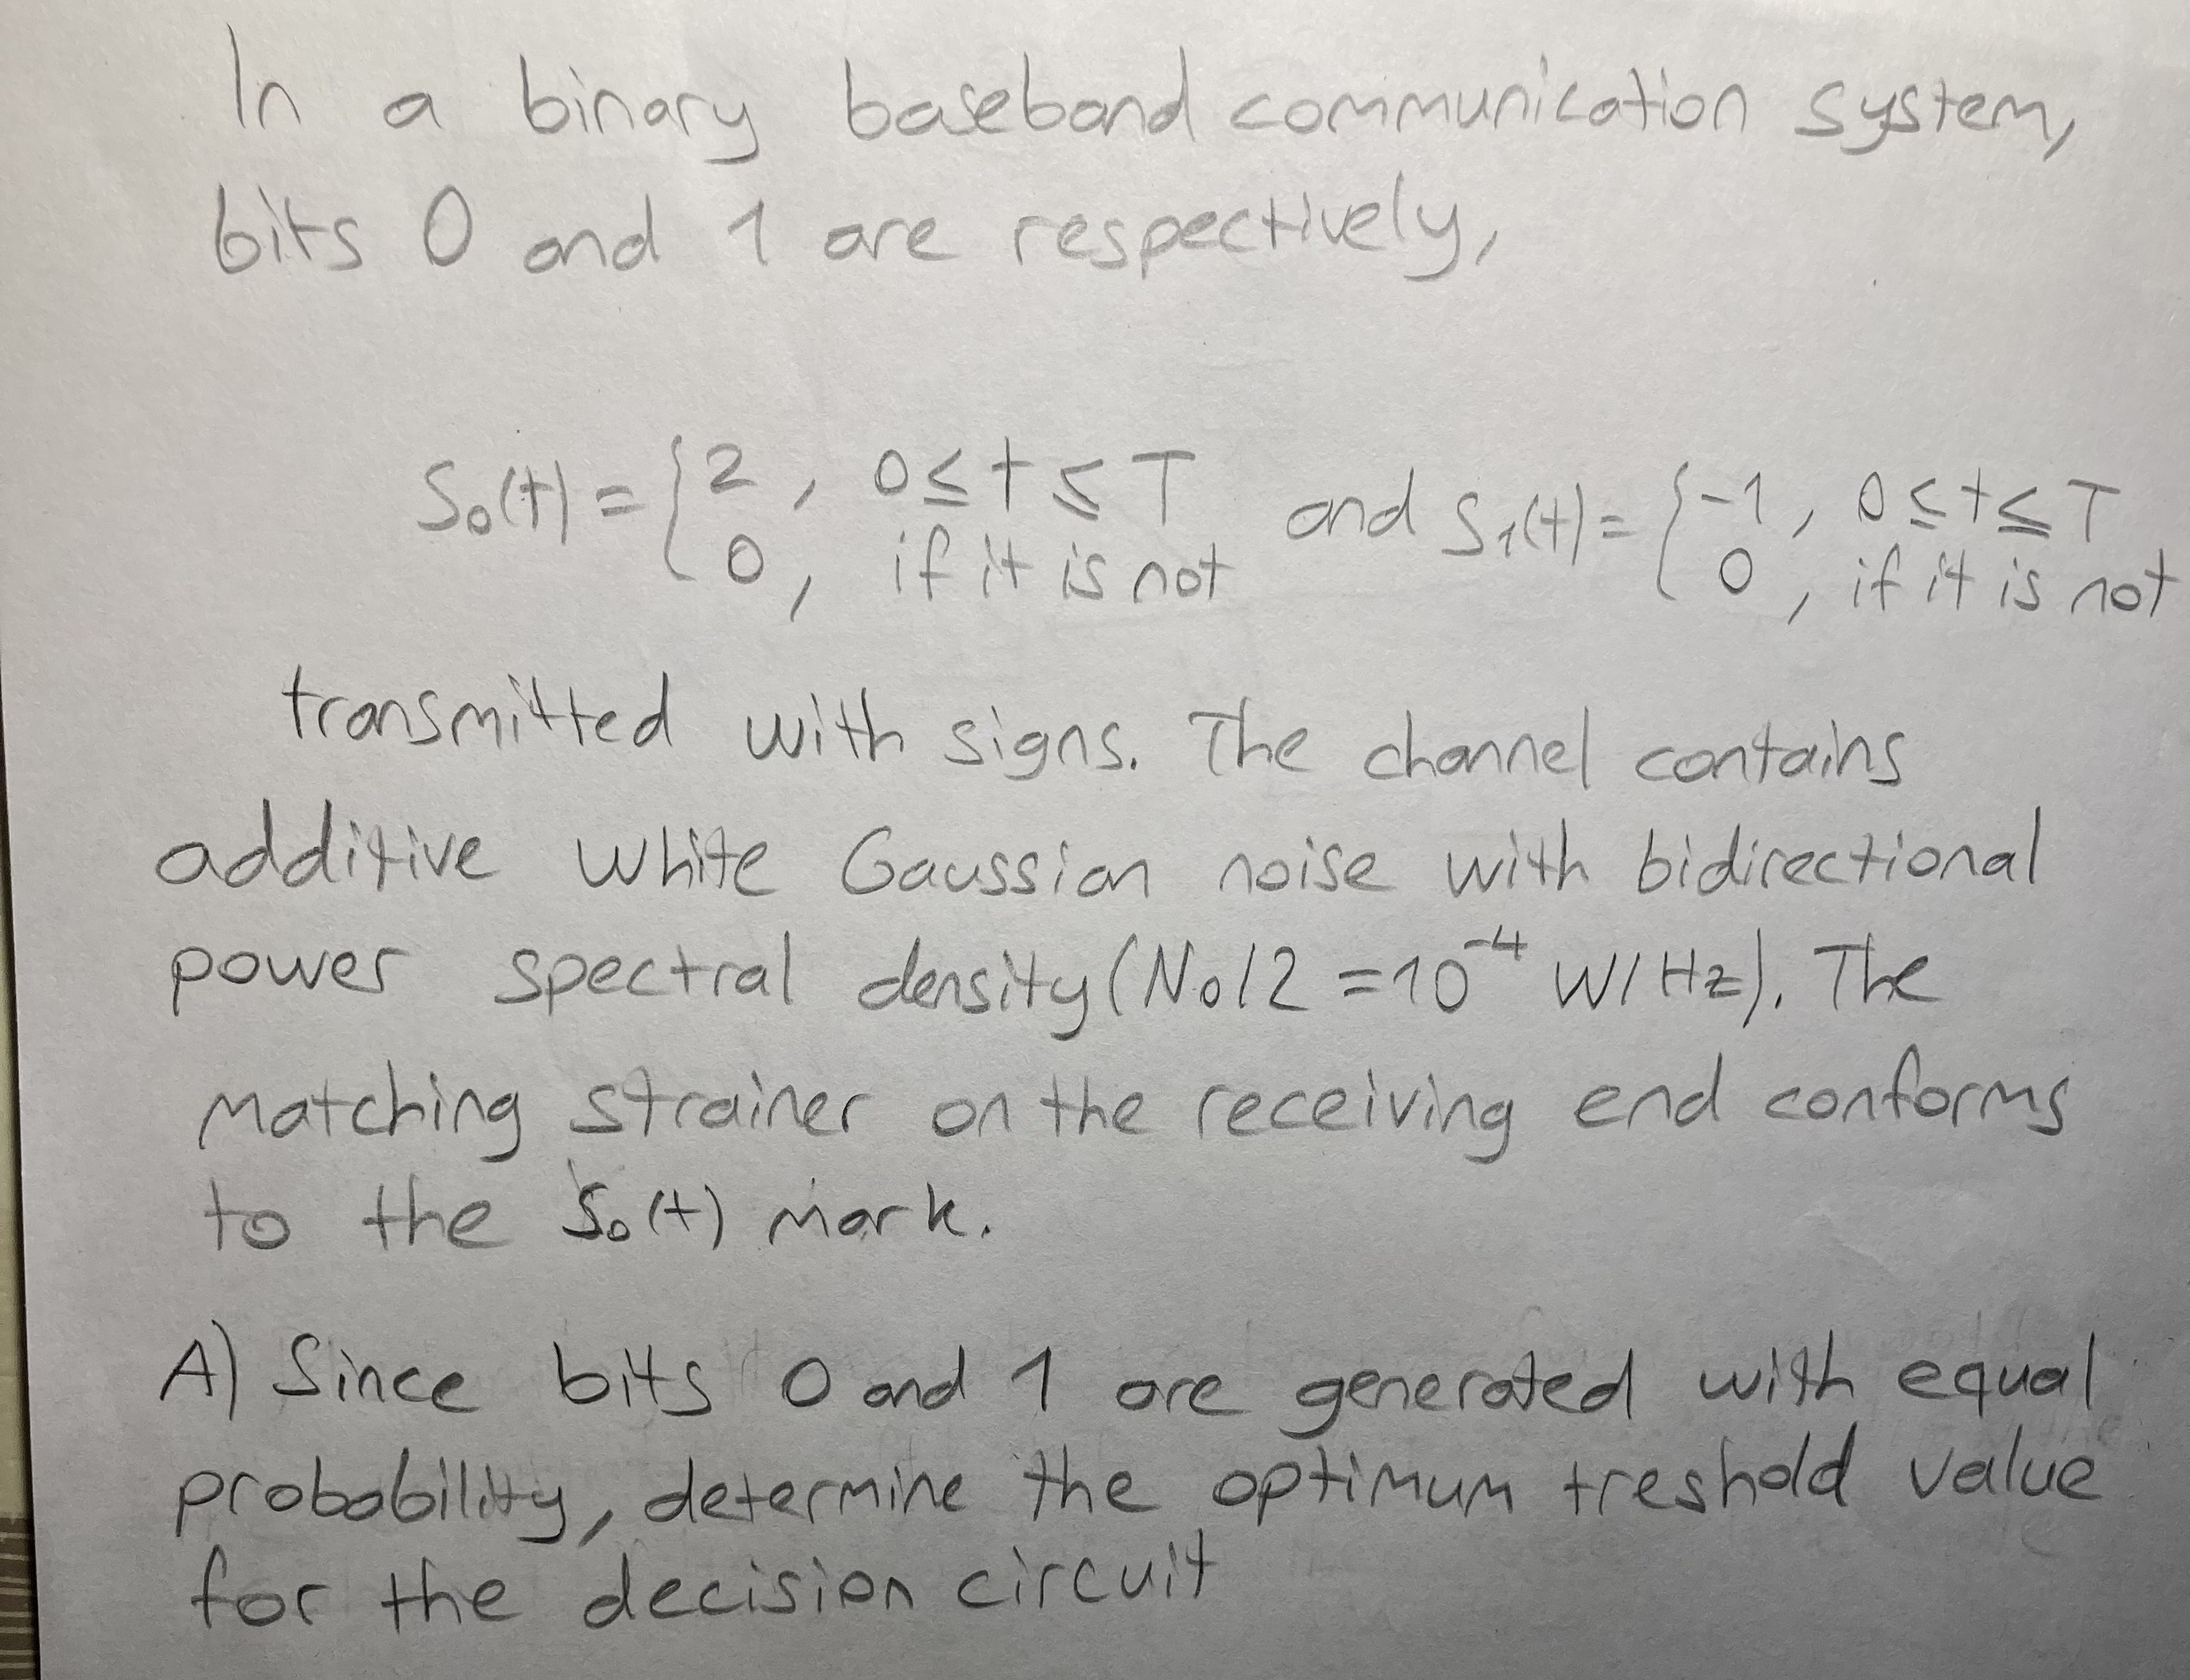 In a binary baseband communication system,
bits 0 and 1 are respectively,
S₀(t) = { 2, 0 ≤ t ≤ T and S₁(t) = { -1, 0 ≤ t ≤ T
0, if it is not 0, if it is not
transmitted with signs. The channel contains
additive white Gaussian noise with bidirectional
power spectral density (N₀/2 = 10⁻⁴ W/Hz). The
matching strainer on the receiving end conforms
to the S₀(t) mark.
A) Since bits 0 and 1 are generated with equal
probability, determine the optimum treshold value
for the decision circuit